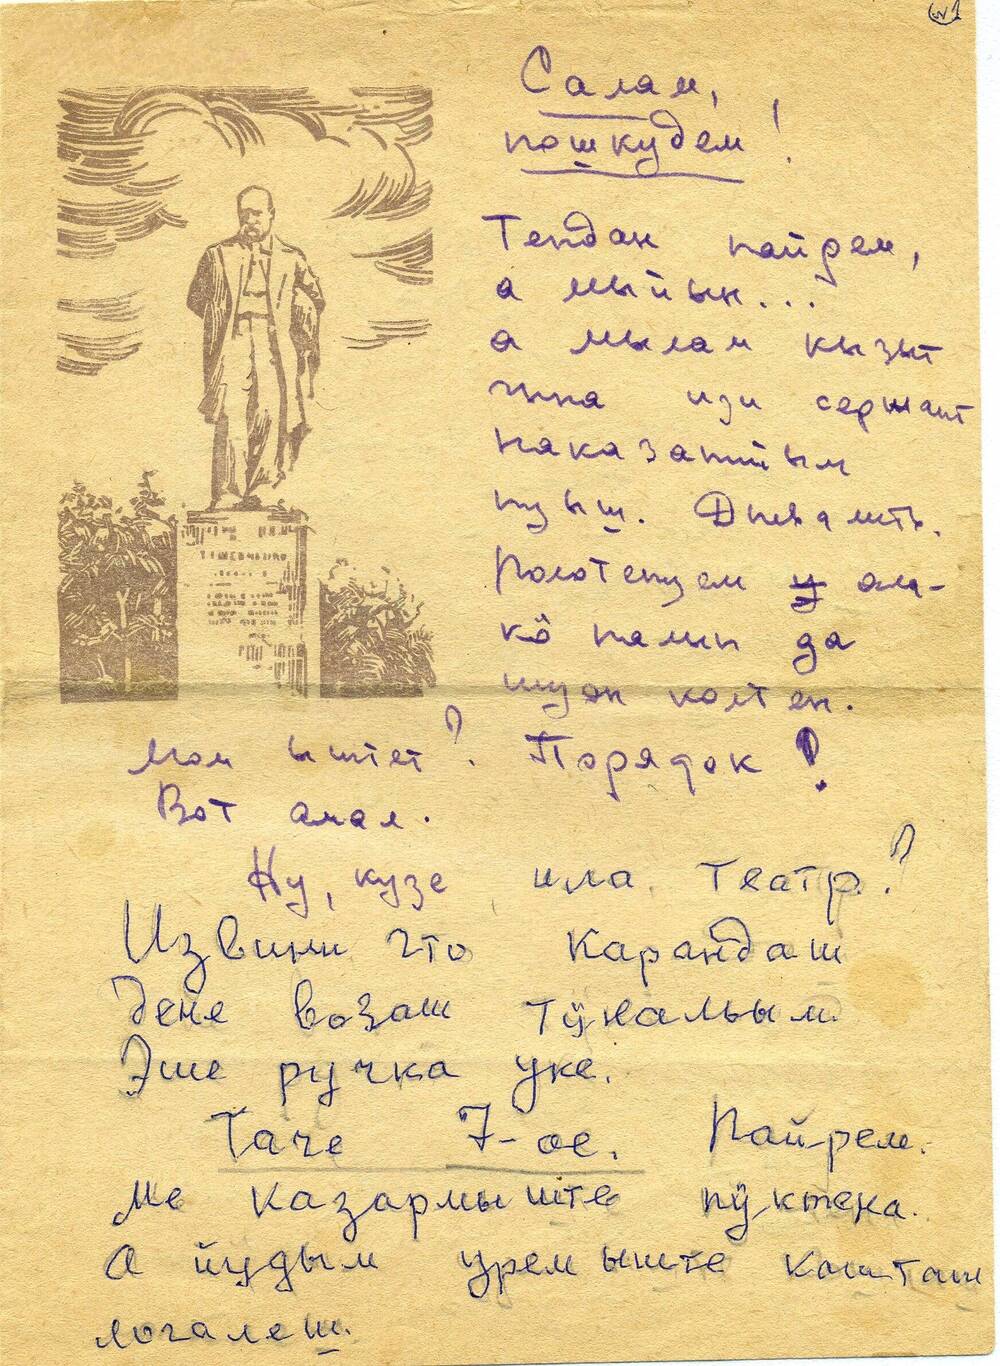 №1
Салам,
пошкудем!
Тендан пайрем,
а мыйын...
а мылам кызыт
гына изи сержант
наказатийым
пуыш. Дневалить.
Полотенцем у ол-
кӧ налын да
шуэн колтен.
Мом ыштет? Порядок!
Вот амал.
Ну, кузе ила театр?
Извини что карандаш
дене возаш тӱҥальым
Эше ручка уке.
Таче 7-ое. Пайрем.
Ме казармыште пӱктена.
А йудым урем ыште кошташ
логалеш.